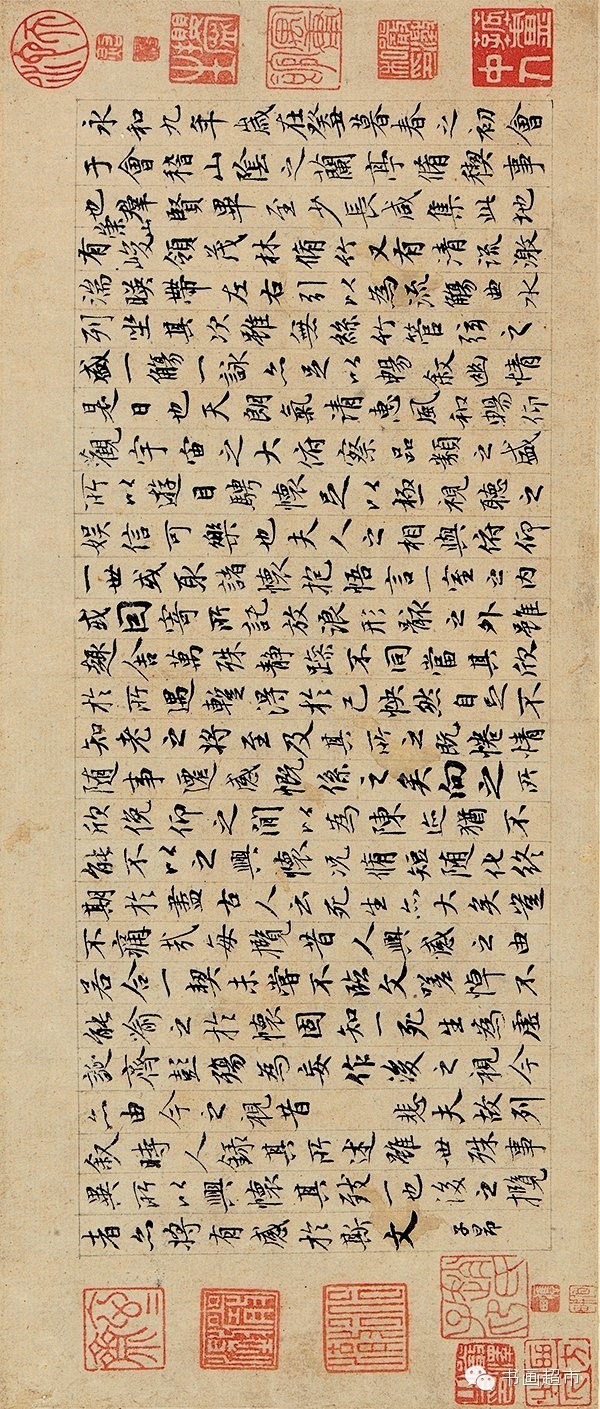 永和九年歲在癸丑暮春之初會
于會稽山陰之蘭亭脩稧事
也羣賢畢至少長咸集此地
有崇山峻領茂林脩竹又有清流激
湍暎帶左右引以為流觴曲水
列坐其次雖無絲竹管弦之
盛一觴一詠亦足以暢敘幽情
是日也天朗氣清惠風和暢仰
觀宇宙之大俯察品類之盛
所以遊目騁懷足以極視聽之
娛信可樂也夫人之相與俯仰
一世或取諸懷抱悟言一室之內
或因寄所託放浪形骸之外雖
趣舍萬殊靜躁不同當其欣
於所遇暫得於己怏然自足不
知老之將至及其所之既惓情
隨事遷感慨係之矣向之所
欣俛仰之間以為陳迹猶不
能不以之興懷況脩短隨化終
期於盡古人云死生亦大矣豈
不痛哉每攬昔人興感之由
若合一契未嘗不臨文嗟悼不
能喻之於懷固知一死生為虛
誕齊彭殤為妄作後之視今
亦由今之視昔 悲夫故列
敘時人錄其所述雖世殊事
異所以興懷其致一也後之攬
者亦將有感於斯文 子昂
书画超市